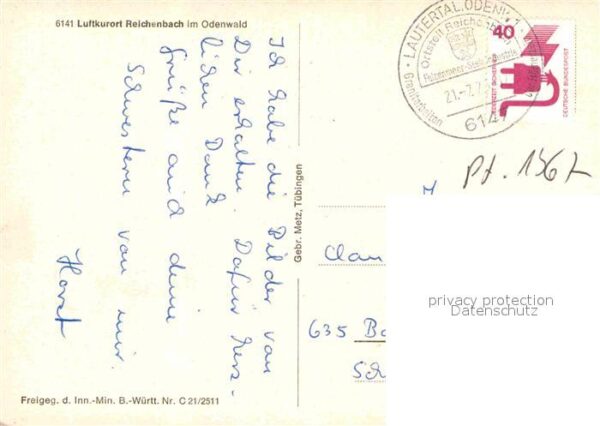 6141 Luftkurort Reichenbach im Odenwald
Ich habe die Bilder von
Dir erhalten. Dafür herz-
lichen Dank
Grüße auch deine
Schwestern von mir.
Horst
Gebr. Metz, Tübingen
Freigeg. d. Inn.-Min. B.-Württ. Nr. C 21/2511
LAUTERTAL, ODENW. 1
Ortsteil Reichenbach
Felsenmeer
21.-7.7
6147
40
JEDERZEIT SICHERHEIT
DEUTSCHE BUNDESPOST
Pf. 1567
Clau
635 Ba
Sch
privacy protection
Datenschutz